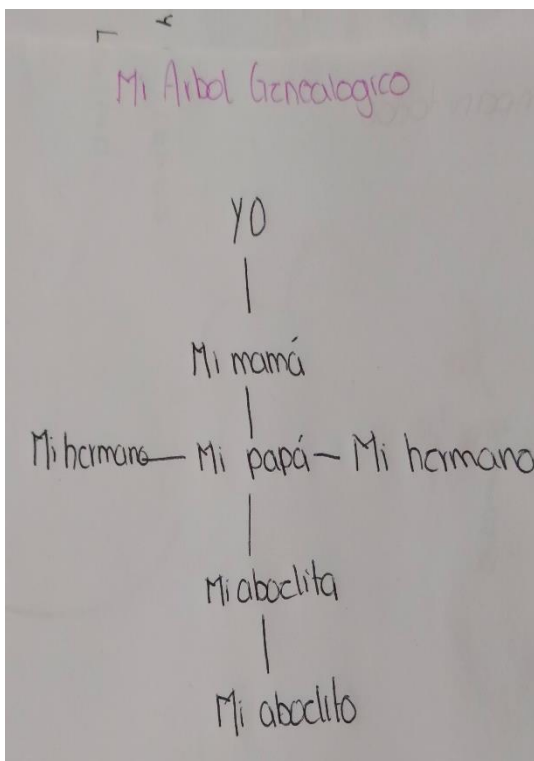 Mi Arbol Genealogico
YO
Mi mamá
Mi hermano — Mi papá — Mi hermano
Mi aboelita
Mi aboelito